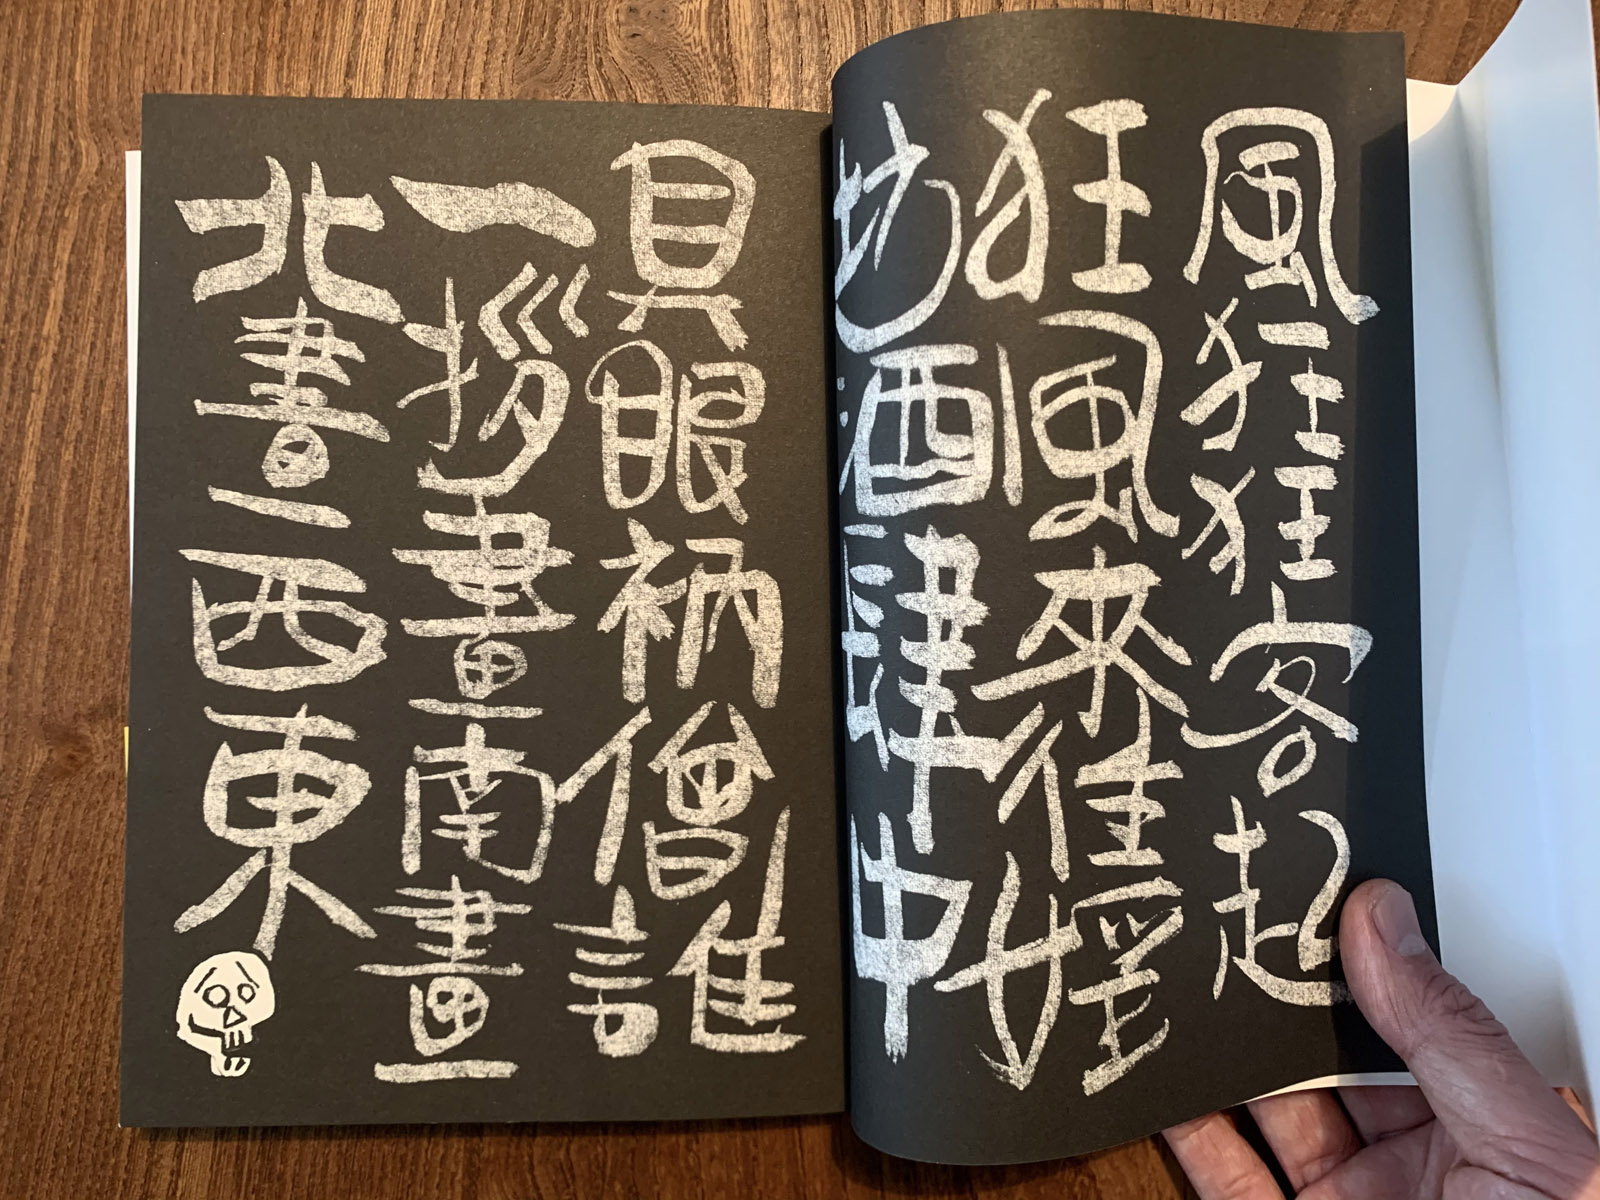 風狂狂客起
狂風來往婬
坊酒肆中
具眼衲僧誰
一拶畫南畫
北畫西東